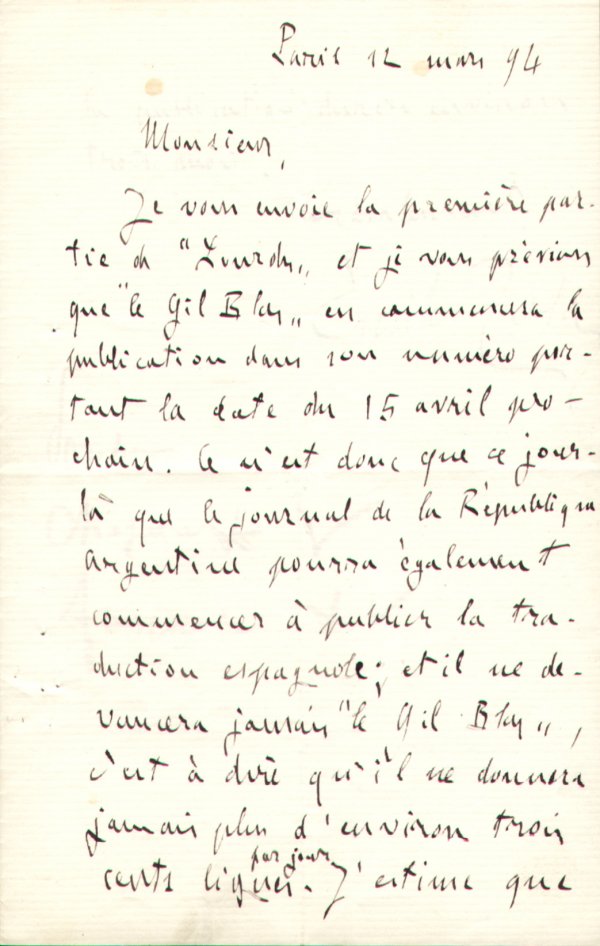 Paris 12 mars 94
Monsieur,
Je vous envoie la première par-
tie de "Lourdes", et je vous préviens
que "le Gil Blas" en commencera la
publication dans son numéro por-
tant la date du 15 avril pro-
chain. Ce n'est donc que ce jour-
là que le journal de la République
argentine pourra également
commencer à publier la tra-
duction espagnole; et il ne de-
vancera jamais "le Gil Blas",
c'est à dire qu'il ne donnera
jamais plus d'environ trois
cents lignes par jour. J'estime que